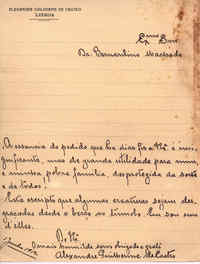 ALEXANDRE GUILHERME DE CASTRO
LISBOA
Exmo Snr.
Dr. Bernardino Machado
A essencia do pedido que ha dias fiz a V.Ex. é insi-
gnificante, mas de grande utilidade para mim,
e minha pobre familia, desprotegida da sorte
e de todos!
Está escripto que algumas creaturas sejam des-
graçadas desde o berço ao tumulo. Eu sou uma
d'ellas.
De V.Ex.
O mais humilde servo obrigado e grato
Alexandre Guilherme de Castro